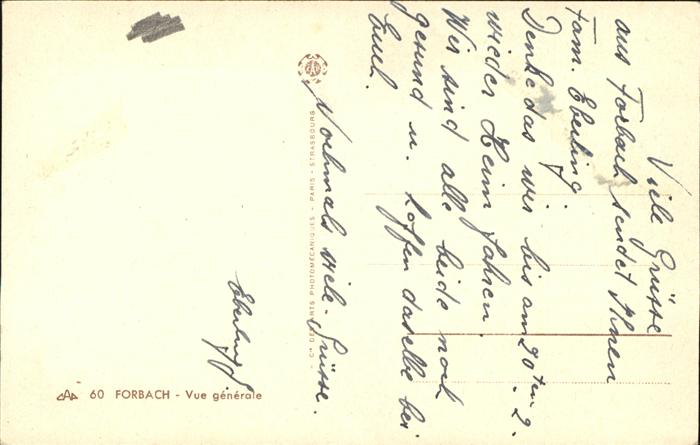 Viele Grüsse
aus Forbach sendet Ihnen
Fam. Eberling.
Denke das wir bis am 20ten 2.
wieder Heim fahren.
Wir sind alle beide noch
gesund u. hoffen dasselbe bei
Euch.
Nochmals viele Grüsse.
Eberling J.
Cie DES ARTS PHOTOMÉCANIQUES - PARIS - STRASBOURG
CAP 60 FORBACH - Vue générale